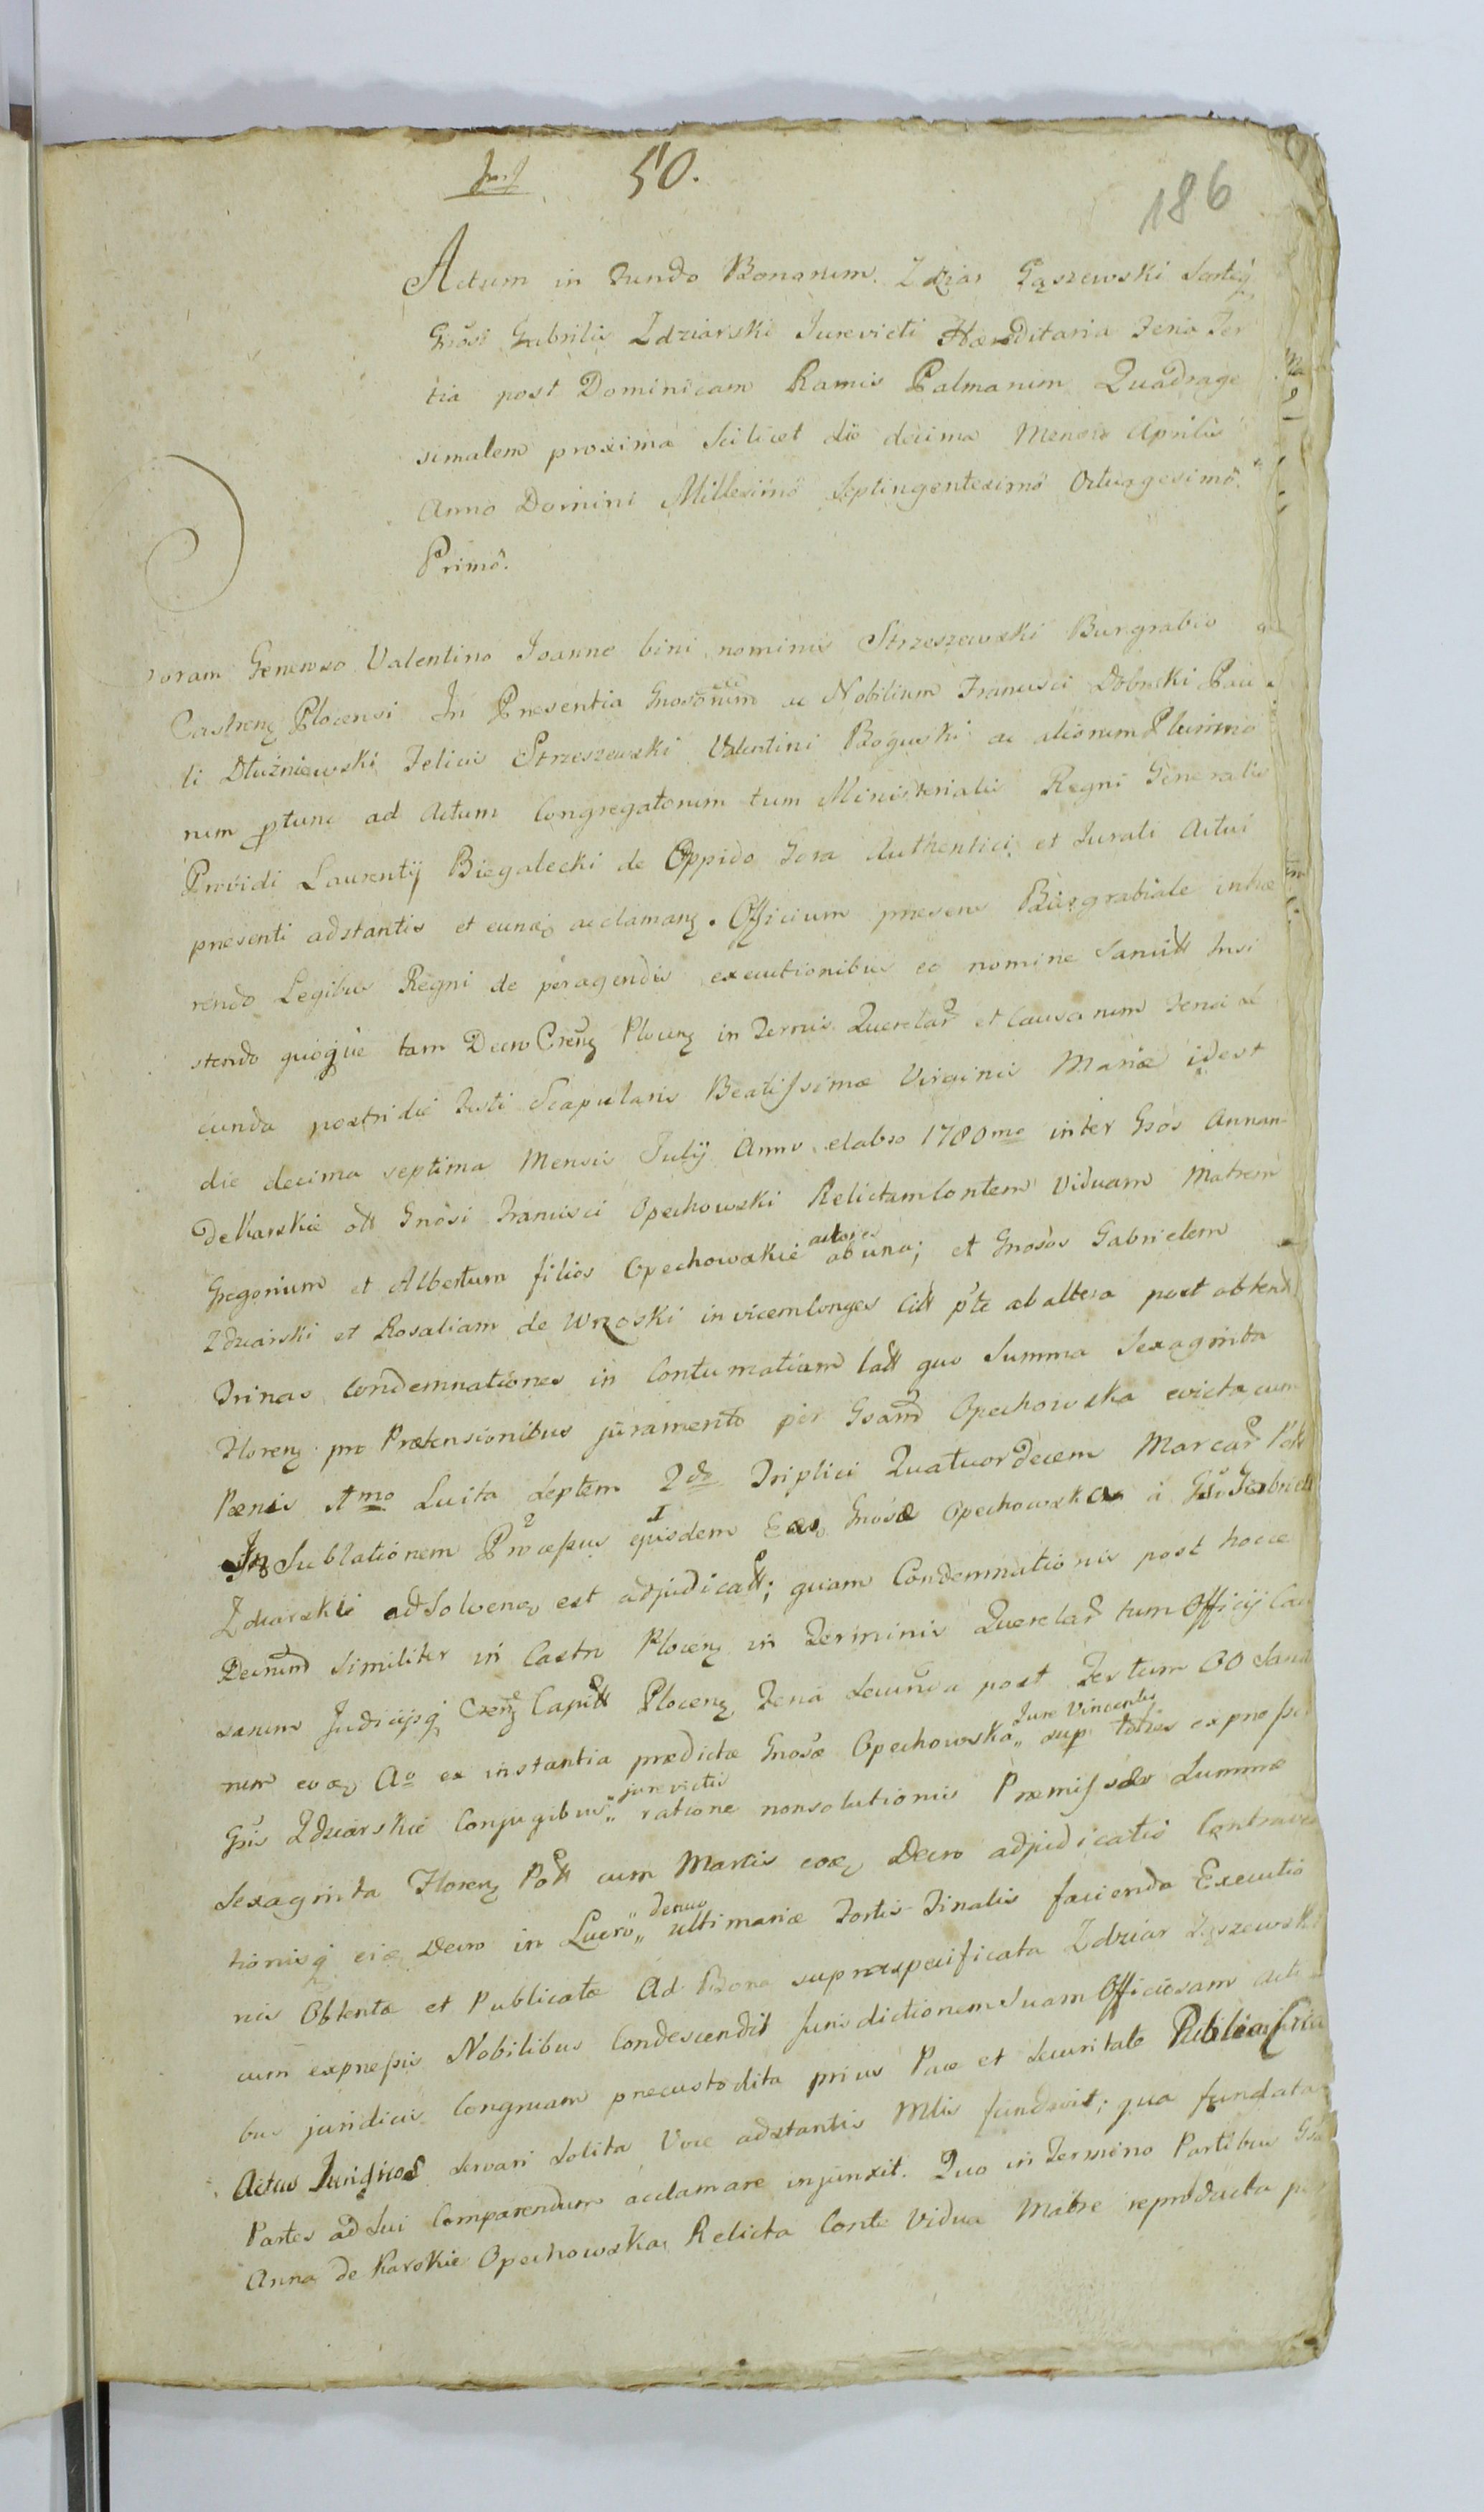 50.
186
Actum in Fundo Bonorum Zdziar Gąszewski Sortisq
Gnosi Gabrielis Zdziarski Jurevicti Hæreditaria Feria Ter
tia post Dominicam Ramis Palmarum Quadrage
simalem proxima scilicet die decima Mensis Aprilis
Anno Domini Millesimô Septingentesimô Octuagesimô
Primô.
Coram Generoso Valentino Joanne bini nominis Strzeszewski Burgrabio
Castrenz Plocensi In Presentia Gnosorum ac Nobilium Francisci Dobrski Pau
li Dłużniewski Felicis Strzeszewski Valentini Boguski ac aliorum Plurimo
rum ptunc ad Actum Congregatorum tum Ministerialis Regni Generalis
Providi Laurentij Biegalecki de Oppido Gora Authentici et Jurati Actui
presenti adstantis et eunq acclamanz. Officium presens Burgrabiale inhæ
rendo Legibus Regni de peragendis executionibus eo nomine Sancitt Insi
stendo quoque tam Decro Crenz Plocenz in Termis Querelar et Causarum Feria Se
cunda postridie Festi Scapularis Beatissimæ Virginis Mariæ idest
die decima septima Mensis Julij Anno elabso 1780mo inter Gsos Annam
de Karskie ott Gnosi Francisci Opechowski Relictam Contem Viduam Matrem
Gregorium et Albertum filios Opechowskie actores ab una; et Gnosos Gabrielem
Zdziarski et Rosaliam de Wroski invicem Conges Citt pte ab altera post obtent
Trinas Condemnationes in Contumatiam latt quo Summa Sexaginta
Florenz pro Prætensionibus juramento per Gsam Opechowska evicta cum
Pænis Atmo Luita Septem 2do Triplici Quatuordecem Marcar Pott
In Sublationem Processus ejusdem Gnosæ Opechowska a Gso Gabriele
Zdziarskie adsolvenq est adjudicatt; quam Condemnationis post hocce
Decrum Similiter in Castro Plocenz in Terminis Querelar tum Officij Cau
sarum Judicijsq Crenz Capitt Plocenz Feria Secunda post Festum OO Sancto
rum eoq Ao ex instantia prædictæ Gnosæ Opechowska „Jure Vincentis sup toties expressis
Gsis Zdziarskie Conjugibus „jurevictis ratione nonsolutionis Præmissæ Summæ
Sexaginta Florenz Pott cum Marcis eoq Decro adjudicatis Contraven
tionisq eiq Decro in Lucro „denuo ultimariæ Fortis Finalis facienda Executio
nis Obtentæ et Publicatæ Ad Bona supraspecificata Zdziar Gąszewski
cum expressis Nobilibus Condescendit Jurisdictionemq Suam Officiosam acti
bus juridicis Congruam precustodita prius Pace et Securitate Publica circa
Actus Juridicos Servari Solita Voce adstantis Mlis fundavit; qua fundata
Partes ad Sui Comparendum acclamare injunxit. Quo in Termino Partibus Gsa
Anna de Karskie Opechowska Relicta Conte Vidua Matre reproducta per